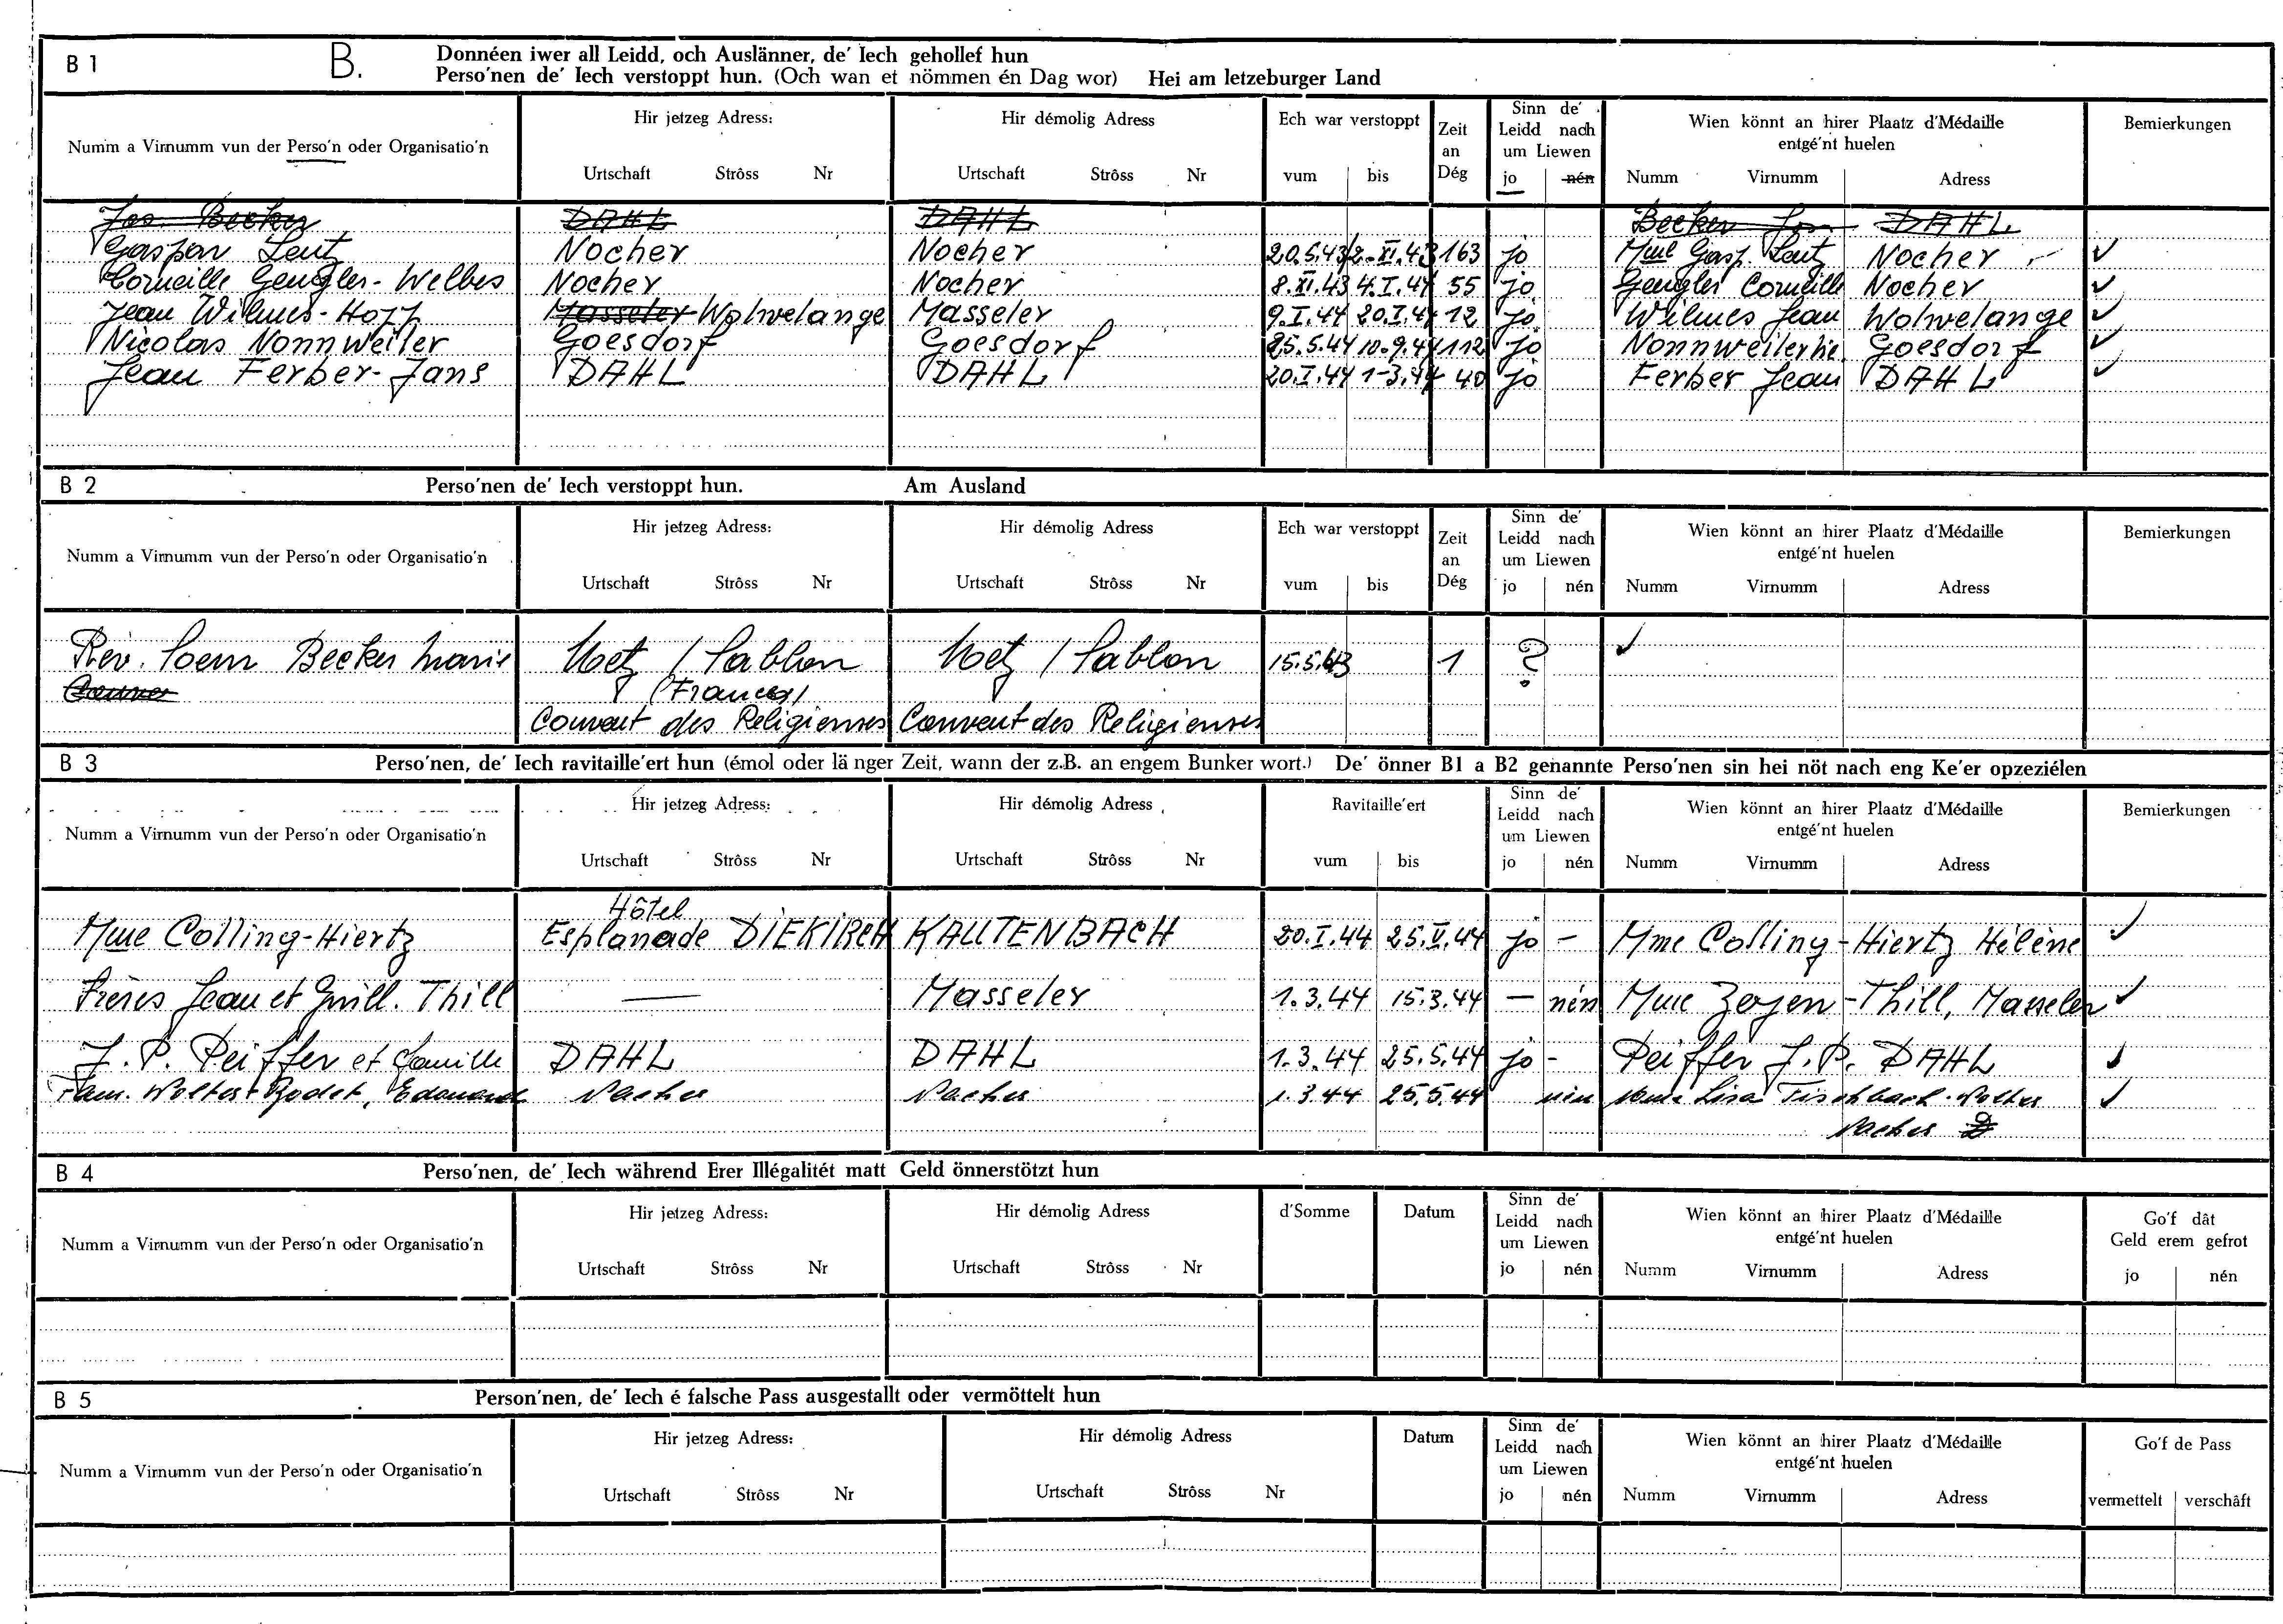 B 1 B. Donnéen iwer all Leidd, och Auslänner, de' Iech gehollef hun
Perso'nen de' Iech verstoppt hun. (Och wan et nömmen én Dag wor) Hei am letzeburger Land
Numm a Virnumm vun der Perso'n oder Organisatio'n
Hir jetzeg Adress:
Urtschaft Ströss Nr
Hir démolig Adress
Urtschaft Ströss Nr
Ech war verstoppt
vum bis
Zeit
an
Dég
Sinn de'
Leidd nach
um Liewen
jo nén
Wien könnt an hirer Plaatz d'Médaille
entgé'nt huelen
Numm Virnumm Adress
Bemierkungen
Jos. Becker DAHL DAHL Becker Jos DAHL
Gaspar Leut Nocher Nocher 20.5.43 2.XI.43 163 jo Mme Gasp. Leut Nocher ✓
Corneille Gengler-Welbes Nocher Nocher 8.XI.43 4.I.44 55 jo Gengler Corneille Nocher ✓
Jean Wilmes-Hopp Masseler Wolwelange Masseler 9.I.44 20.I.44 12 jo Wilmes Jean Wolwelange ✓
Nicolas Nonnweiler Goesdorf Goesdorf 25.5.44 10.9.44 112 jo Nonnweiler Goesdorf ✓
Jean Ferber-Jans DAHL DAHL 20.I.44 1-3.44 40 jo Ferber Jean DAHL ✓
B 2 Perso'nen de' Iech verstoppt hun. Am Ausland
Numm a Virnumm vun der Perso'n oder Organisatio'n
Hir jetzeg Adress:
Urtschaft Ströss Nr
Hir démolig Adress
Urtschaft Ströss Nr
Ech war verstoppt
vum bis
Zeit
an
Dég
Sinn de'
Leidd nach
um Liewen
jo nén
Wien könnt an hirer Plaatz d'Médaille
entgé'nt huelen
Numm Virnumm Adress
Bemierkungen
Rév. Soeur Becker Marie Metz / Sablon Metz / Sablon 15.5.43 1 ? ✓
(France)
Couvent des Religieuses Couvent des Religieuses
B 3 Perso'nen, de' Iech ravitaille'ert hun (émol oder länger Zeit, wann der z.B. an engem Bunker wort.) De' önner B1 a B2 genannte Perso'nen sin hei nöt nach eng Ke'er opzeziélen
Numm a Virnumm vun der Perso'n oder Organisatio'n
Hir jetzeg Adress:
Urtschaft Ströss Nr
Hir démolig Adress
Urtschaft Ströss Nr
Ravitaille'ert
vum bis
Sinn de'
Leidd nach
um Liewen
jo nén
Wien könnt an hirer Plaatz d'Médaille
entgé'nt huelen
Numm Virnumm Adress
Bemierkungen
Hôtel
Mme Colling-Hiertz Esplanade DIEKIRCH KAUTENBACH 20.I.44 25.V.44 jo - Mme Colling-Hiertz Hélène ✓
Frères Jean et Guill. Thill — Masseler 1.3.44 15.3.44 - nén Mme Zeyen-Thill, Masseler ✓
J. P. Peiffer et famille DAHL DAHL 1.3.44 25.5.44 jo - Peiffer J. P. DAHL ✓
Fam. Wolter-Rodet, Edouard Nocher Nocher 1.3.44 25.5.44 nén Mme Lisa Tischbach-Wolter ✓
Nocher
B 4 Perso'nen, de' Iech während Erer Illégalitét matt Geld önnerstötzt hun
Numm a Virnumm vun der Perso'n oder Organisatio'n
Hir jetzeg Adress:
Urtschaft Ströss Nr
Hir démolig Adress
Urtschaft Ströss Nr
d'Somme
Datum
Sinn de'
Leidd nach
um Liewen
jo nén
Wien könnt an hirer Plaatz d'Médaille
entgé'nt huelen
Numm Virnumm Adress
Go'f dât
Geld erem gefrot
jo nén
B 5 Person'nen, de' Iech é falsche Pass ausgestallt oder vermöttelt hun
Numm a Virnumm vun der Perso'n oder Organisatio'n
Hir jetzeg Adress:
Urtschaft Ströss Nr
Hir démolig Adress
Urtschaft Ströss Nr
Datum
Sinn de'
Leidd nach
um Liewen
jo nén
Wien könnt an hirer Plaatz d'Médaille
entgé'nt huelen
Numm Virnumm Adress
Go'f de Pass
vermettelt verschâft